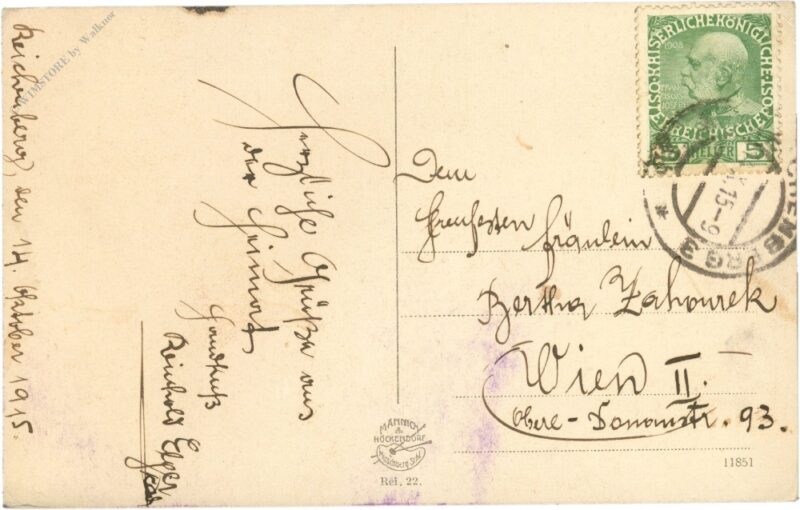 Reichenberg, den 14. Oktober 1915.
WIMSTORE by Walkner
Herzliche Grüße aus
der Heimat
Handkuß
Reinhold
Dem
Fräulein
Bertha Zahourek
Wien II.
Obere-Donaustr. 93.
KAISERLICHE KÖNIGLICHE
ÖSTERREICHISCHE POST
1908
5 HELLER 5
CHENBERG 2
15-9
MANNICH
&
HÖCKENDORF
Rei. 22.
11851